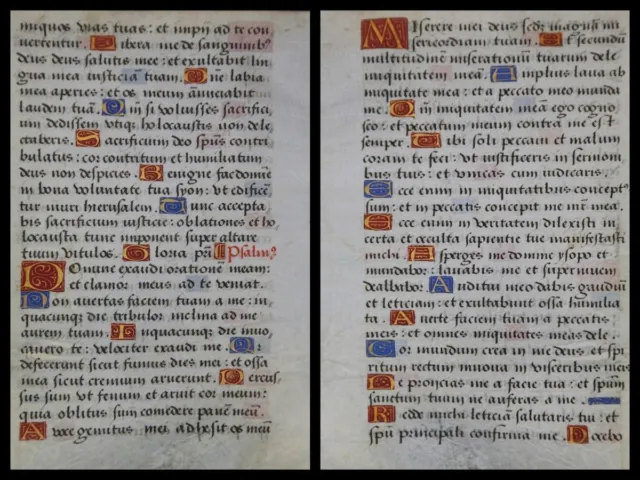 iniquos vias tuas: et impii ad te con
vertentur. Libera me de sanguinibꝰ
deus deus salutis mee: et exultabit lin
gua mea iusticiā tuam. Dñe labia
mea aperies: et os meum annūciabit
laudem tuā. Qm̄ si voluisses sacrifici
um dedissem vtiqꝫ holocaustis non dele
ctaberis. Sacrificium deo spūs contri
bulatus: cor contritum et humiliatum
deus non despicies. Benigne fac domine
in bona voluntate tua syon: vt edificē
tur muri hierusalem. Tunc accepta
bis sacrificium iusticie: oblationes et ho
locausta tunc imponent super altare
tuum vitulos. Gloria pr̄i Psalmꝰ
Domine exaudi orationē meam:
et clamor meus ad te veniat.
Non avertas faciem tuam a me: in
quacunqꝫ die tribulor inclina ad me
aurem tuam. Inquacunqꝫ die invo
cavero te: velociter exaudi me. Qr̄
defecerunt sicut fumus dies mei: et ossa
mea sicut cremium aruerunt. Percus
sus sum vt fenum et aruit cor meum:
quia oblitus sum comedere panē meū.
A voce gemitus mei adhesit os meū
Miserere mei deus sedm̄ magnā mi
sericordiam tuam. Et secundū
multitudinē miserationū tuarum dele
iniquitatem meā. Amplius lava ab
iniquitate mea: et a peccato meo munda
me. Qm̄ iniquitatem meā ego cogno
sco: et peccatum meum contra me est
semper. Tibi soli peccavi et malum
coram te feci: vt iustificeris in sermoni
bus tuis: et vincas cum iudicaris.
Ecce enim in iniquitatibus conceptꝰ
sum: et in peccatis concepit me mr̄ mea.
Ecce enim veritatem dilexisti in
certa et occulta sapientie tue manifestasti
michi. Asperges me domine ysopo et
mundabor: lavabis me et super nivem
dealbabor. Auditui meo dabis gaudiū
et leticiam: et exultabunt ossa humilia
ta. Averte faciem tuam a peccatis
meis: et omnes iniquitates meas dele.
Cor mundum crea in me deus et spi
ritum rectum innova in visceribus meis
Ne proiicias me a facie tua: et spūm
sanctum tuum ne auferas a me.
Redde michi leticiā salutaris tui: et
spū principali confirma me. Docebo